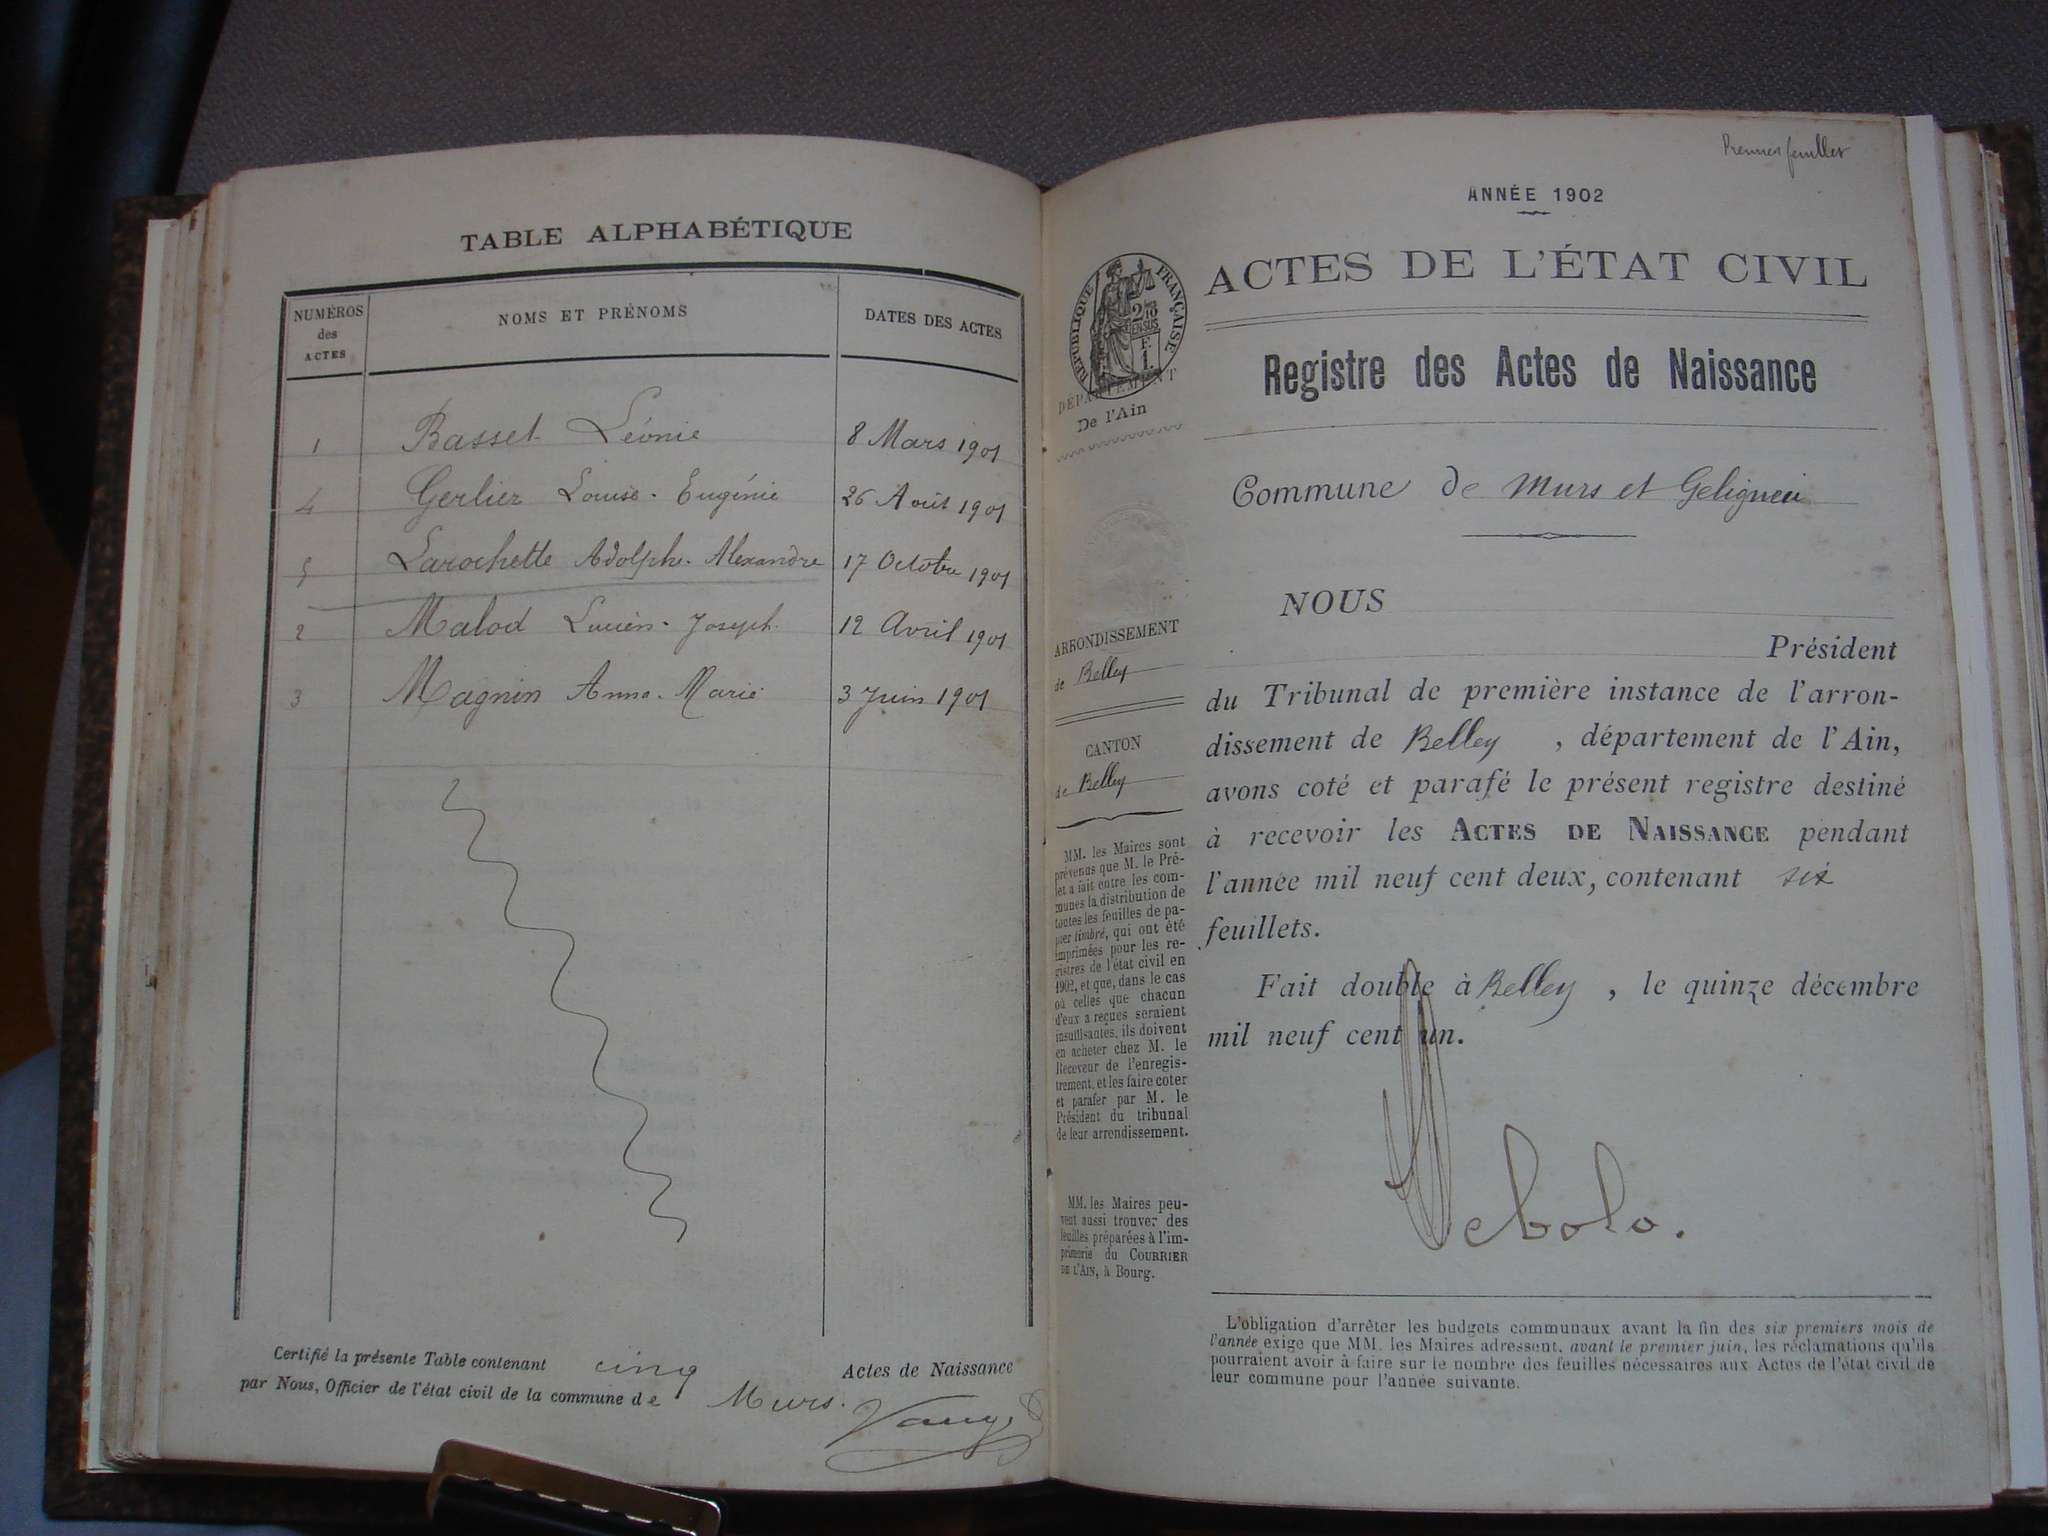 TABLE ALPHABÉTIQUE
NUMÉROS des ACTES
NOMS ET PRÉNOMS
DATES DES ACTES
1 Basset Léonie 8 Mars 1901
4 Gerlier Louise-Eugénie 26 Août 1901
5 Larochette Adolphe-Alexandre 17 Octobre 1901
2 Malod Lucien-Joseph 12 Avril 1901
3 Magnin Anna-Marie 3 Juin 1901
Certifié la présente Table contenant cinq Actes de Naissance
par Nous, Officier de l'état civil de la commune de Murs.
Premier feuillet
ANNÉE 1902
RÉPUBLIQUE FRANÇAISE
2/10 EN SUS
F. 1.
DÉPARTEMENT
De l'Ain
ARRONDISSEMENT
de Belley
CANTON
de Belley
MM. les Maires sont
prévenus que M. le Pré-
fet a fait entre les com-
munes la distribution de
toutes les feuilles de pa-
pier timbré, qui ont été
imprimées pour les re-
gistres de l'état civil en
1902, et que, dans le cas
où celles que chacun
d'eux a reçues seraient
insuffisantes, ils doivent
en acheter chez M. le
Receveur de l'enregis-
trement, et les faire coter
et parafer par M. le
Président du tribunal
de leur arrondissement.
MM. les Maires peu-
vent aussi trouver des
feuilles préparées à l'im-
primerie du COURRIER
DE L'AIN, à Bourg.
ACTES DE L'ÉTAT CIVIL
Registre des Actes de Naissance
Commune de Murs et Geligneu
NOUS
Président
du Tribunal de première instance de l'arron-
dissement de Belley, département de l'Ain,
avons coté et parafé le présent registre destiné
à recevoir les ACTES DE NAISSANCE pendant
l'année mil neuf cent deux, contenant six
feuillets.
Fait double à Belley, le quinze décembre
mil neuf cent un.
L'obligation d'arrêter les budgets communaux avant la fin des six premiers mois de
l'année exige que MM. les Maires adressent, avant le premier juin, les réclamations qu'ils
pourraient avoir à faire sur le nombre des feuilles nécessaires aux Actes de l'état civil de
leur commune pour l'année suivante.